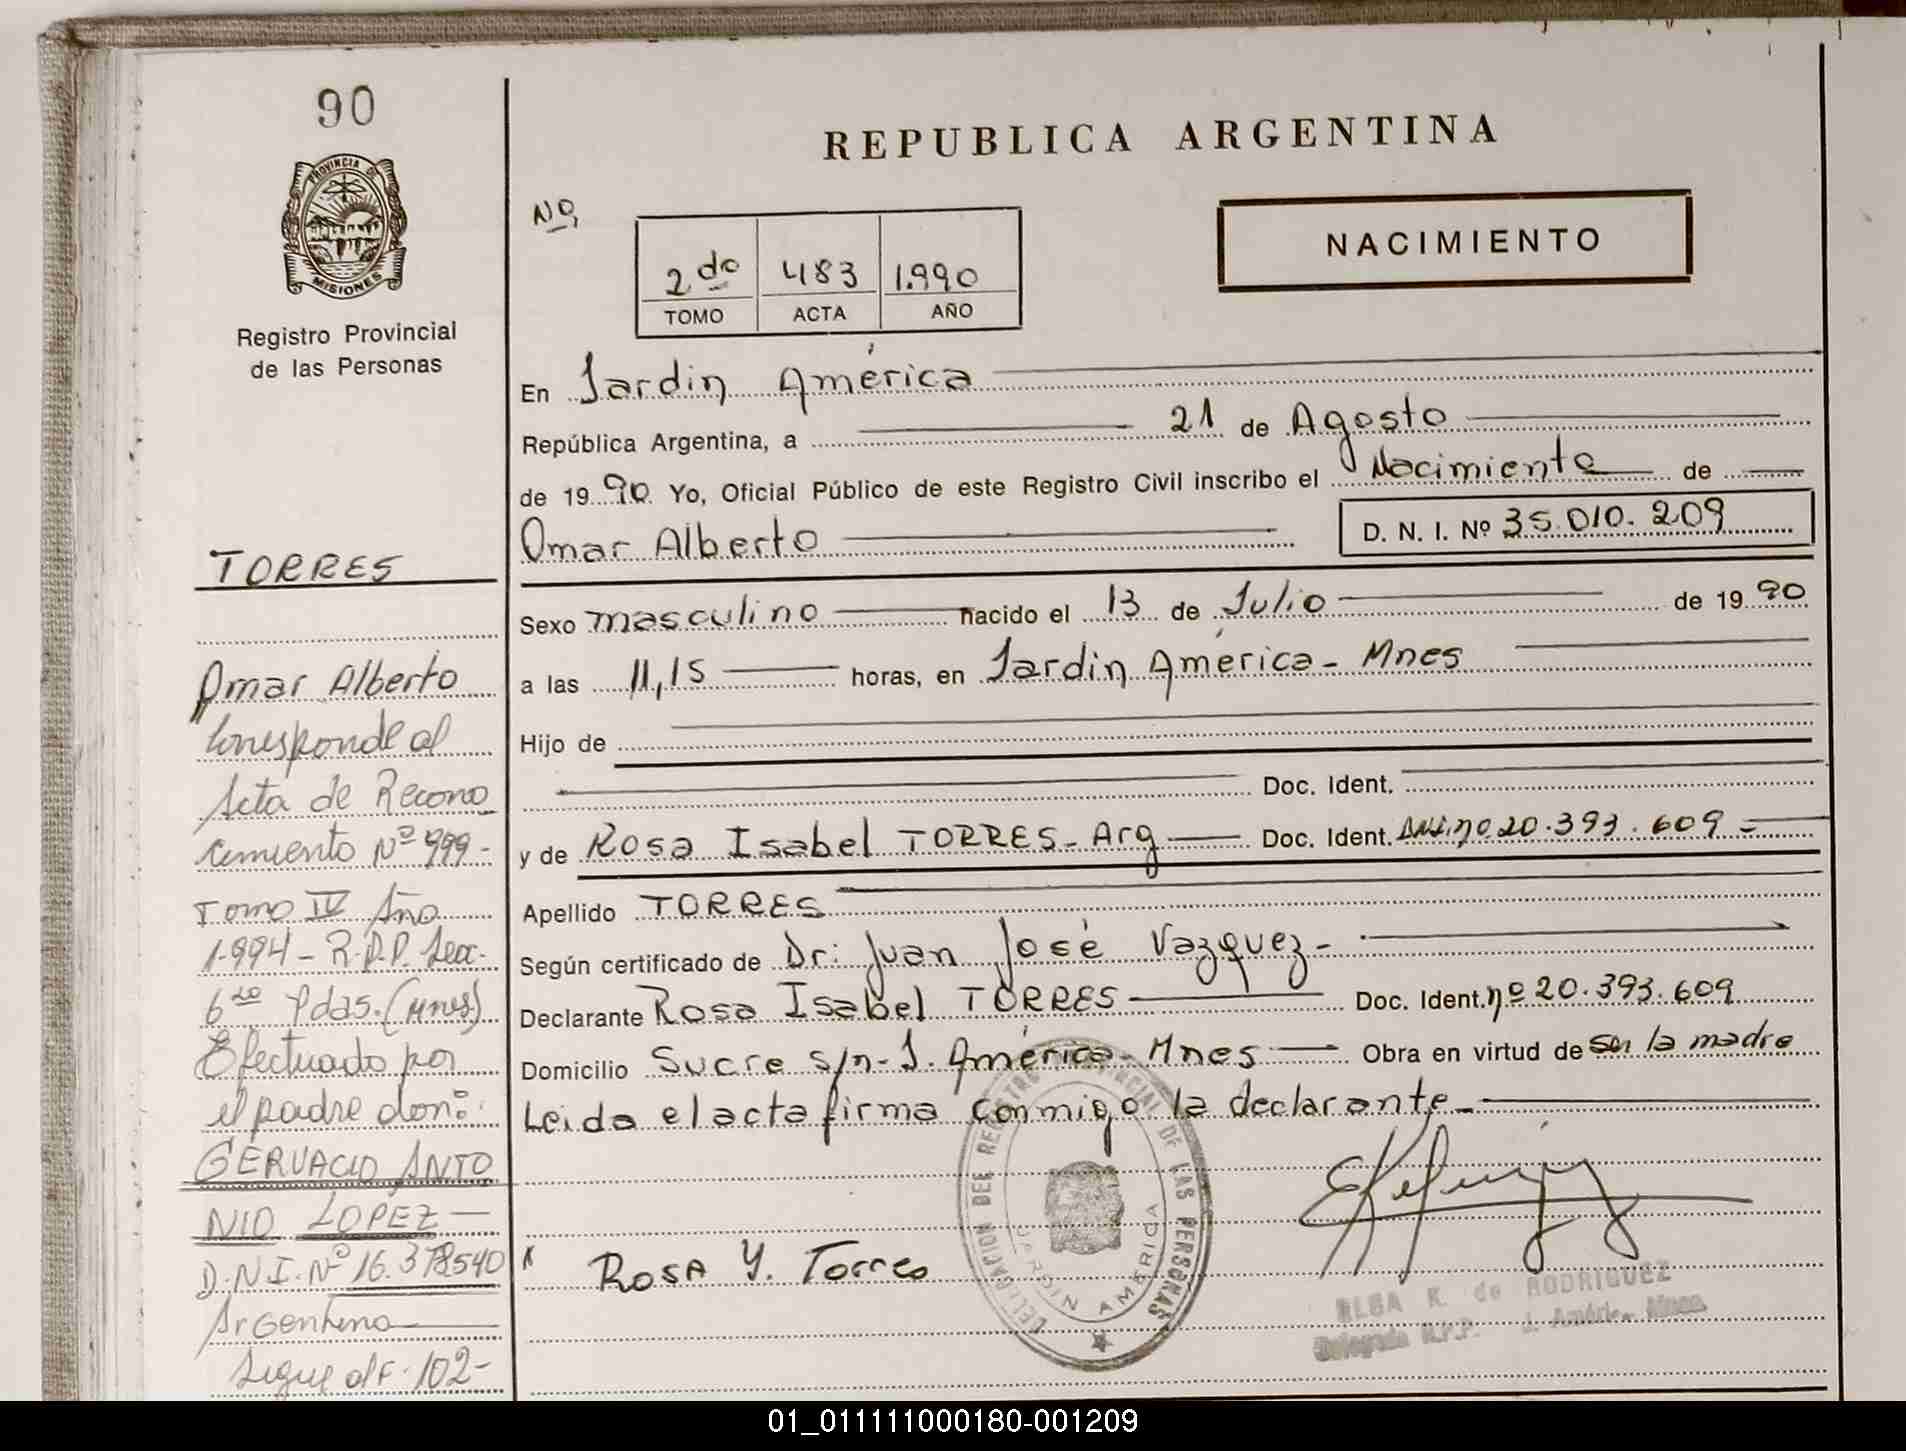 90
PROVINCIA DE
MISIONES
Registro Provincial
de las Personas
TORRES
Omar Alberto
Corresponde al
Acta de Recono
cimiento Nº 999-
Tomo IV Año
1.994 - R.P.P. Secc.
6ta Pdas. (Mnes)
Efectuado por
el padre don:
GERVACIO ANTO
NIO LOPEZ
D.N.I. Nº 16.378540
Argentino
Sigue al F. 102-
REPUBLICA ARGENTINA
Nº
NACIMIENTO
2do 483 1.990
TOMO ACTA AÑO
En Jardin América
República Argentina, a 21 de Agosto
de 1990 Yo, Oficial Público de este Registro Civil inscribo el Nacimiento de
Omar Alberto D. N. I. Nº 35.010.209
Sexo masculino nacido el 13 de Julio de 1990
a las 11,15 horas, en Jardin América - Mnes
Hijo de
Doc. Ident.
y de Rosa Isabel TORRES - Arg Doc. Ident. DNI. nº 20.393.609 -
Apellido TORRES
Según certificado de Dr: Juan José Vazquez -
Declarante Rosa Isabel TORRES Doc. Ident. nº 20.393.609
Domicilio Sucre s/n - J. América - Mnes Obra en virtud de ser la madre
Leida el acta firma conmigo la declarante -
DELEGACION DEL REGISTRO PROVINCIAL DE LAS PERSONAS
JARDIN AMERICA
Rosa Y. Torres
OLGA K. de RODRIGUEZ
Delegada R.P.P. J. América - Mnes.
01_011111000180-001209